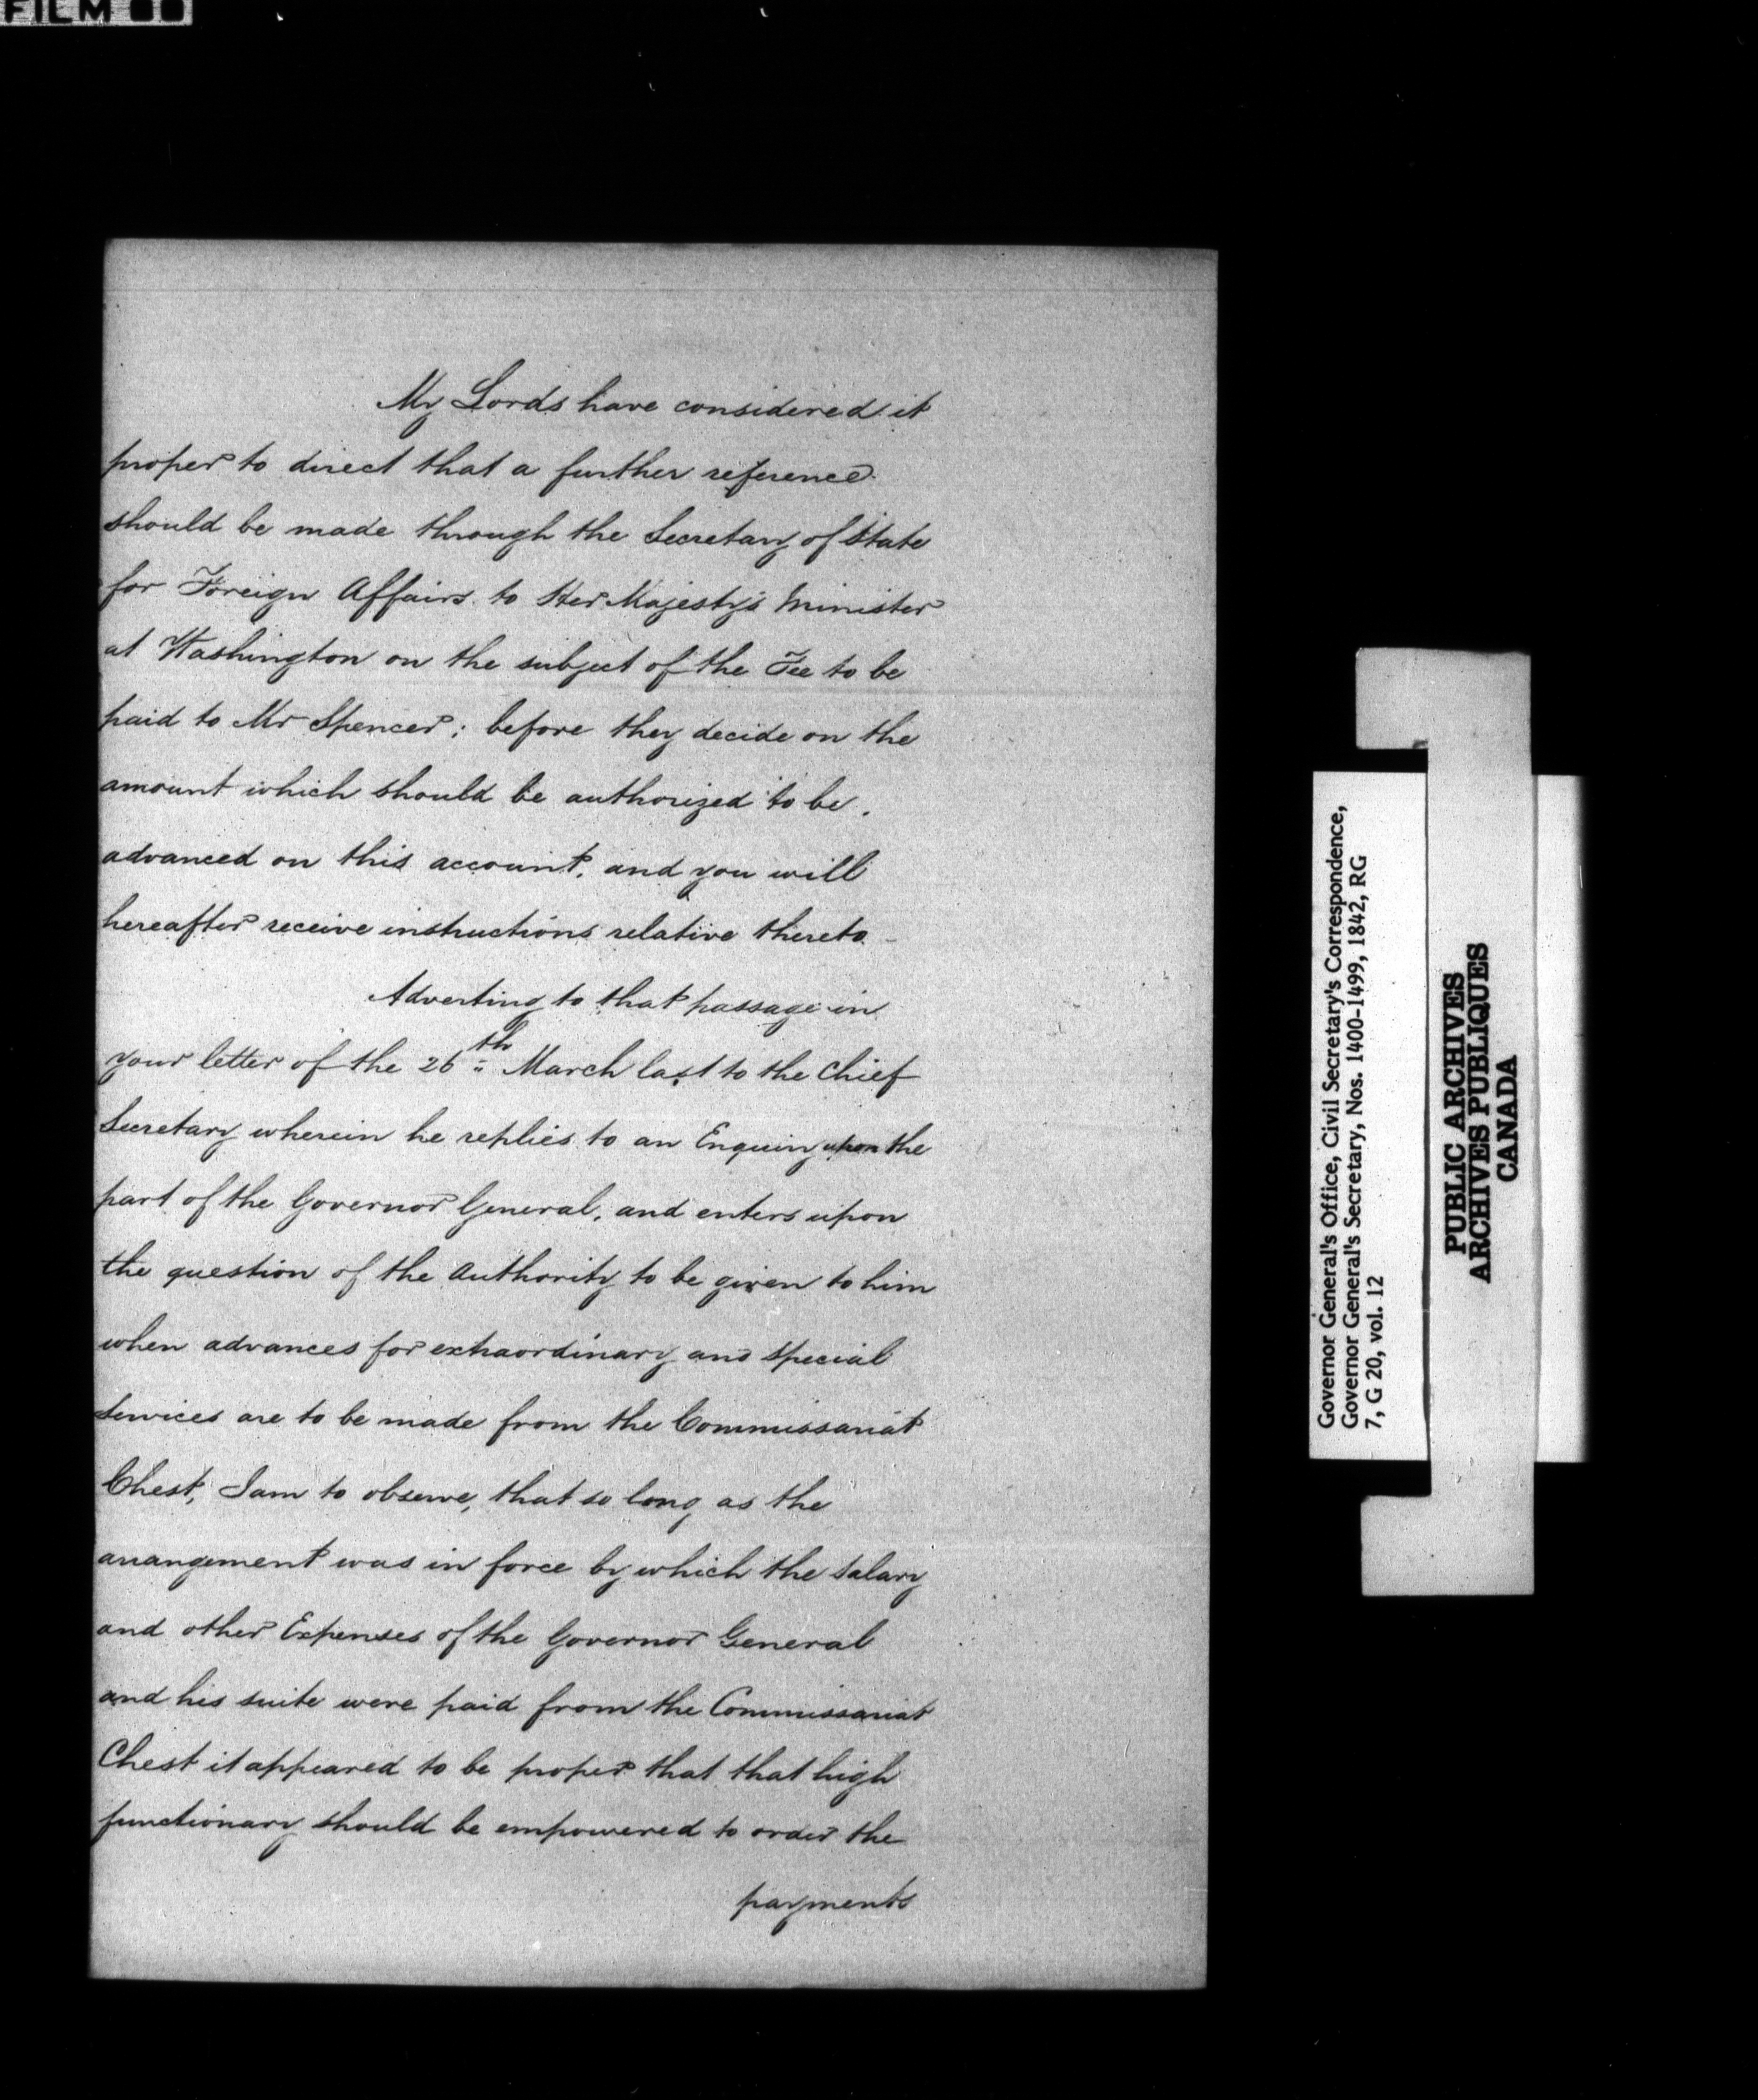 FILM
My Lords have considered it
proper to direct that a further reference
should be made through the Secretary of State
for Foreign Affairs to Her Majesty's Minister
at Washington on the subject of the Fee to be
paid to Mr Spencer; before they decide on the
amount which should be authorized to be
advanced on this account, and you will
hereafter receive instructions relative thereto
Adverting to that passage in
your letter of the 26th March last to the Chief
Secretary wherein he replies to an Enquiry upon the
part of the Governor General, and enters upon
the question of the Authority to be given to him
when advances for extraordinary and special
services are to be made from the Commissariat
Chest, I am to observe, that so long as the
arrangement was in force by which the salary
and other Expenses of the Governor General
and his suite were paid from the Commissariat
Chest it appeared to be proper that that high
functionary should be empowered to order the
payments
Governor General's Office, Civil Secretary's Correspondence,
Governor General's Secretary, Nos. 1400-1499, 1842, RG
7, G 20, vol. 12
PUBLIC ARCHIVES
ARCHIVES PUBLIQUES
CANADA